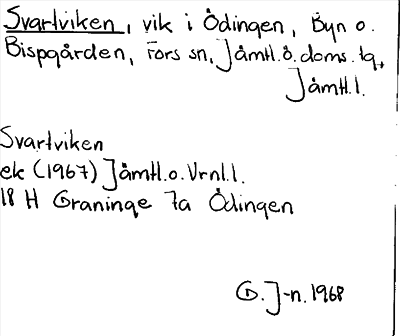 Svartviken, vik i Ödingen, Byn o.
Bispgården, Fors sn, Jämtl. ö. doms. tg,
Jämtl. l.
Svartviken
ek (1967) Jämtl. o. Vrnl. l.
18 H Graninge 7a Ödingen
G. J-n. 1968